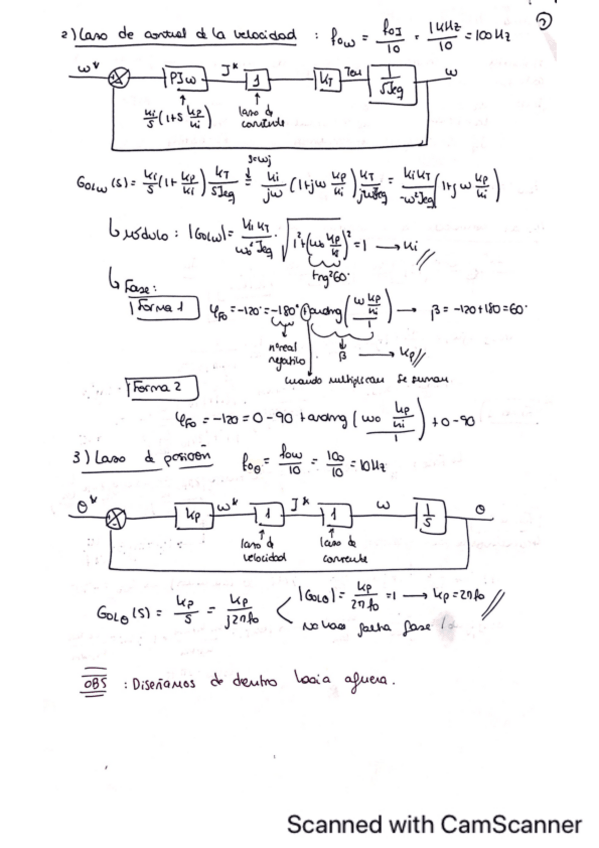 2) Lazo de control de la velocidad : fow = foI/10 = 1kHz/10 = 100Hz
2
ω* PIω I* 1 KT Tem 1/sJeq ω
ki/s (1+s kp/ki) lazo de corriente
s=ωj
GoLω(s) = ki/s (1+ kp/ki) KT/sJeq = ki/jω (1+jω kp/ki) KT/jωJeq = kiKT/-ω²Jeq (1+jω kp/ki)
↳ módulo : |GoLω| = ki KT/ωo² Jeq · √(1²+(ωo kp/ki)²) = 1 → ki //
tng²60°
↳ Fase:
Forma 1 φFo = -120° = -180° + arctng (ω kp/ki / 1) → β = -120+180 = 60°
nº real negativo β → kp //
cuando multiplican se suman
Forma 2
φFo = -120 = 0 - 90 + arctng (ωo kp/ki / 1) + 0 - 90
3) Lazo de posición foθ = fow/10 = 100/10 = 10Hz
θ* kp ω* 1 I* 1 ω 1/s θ
lazo de velocidad lazo de corriente
GoLθ(s) = kp/s = kp/j2πfo < |GoLθ| = kp/2πfo = 1 → kp = 2πfo //
No hace falta fase
OBS : Diseñamos de dentro hacia afuera.
Scanned with CamScanner